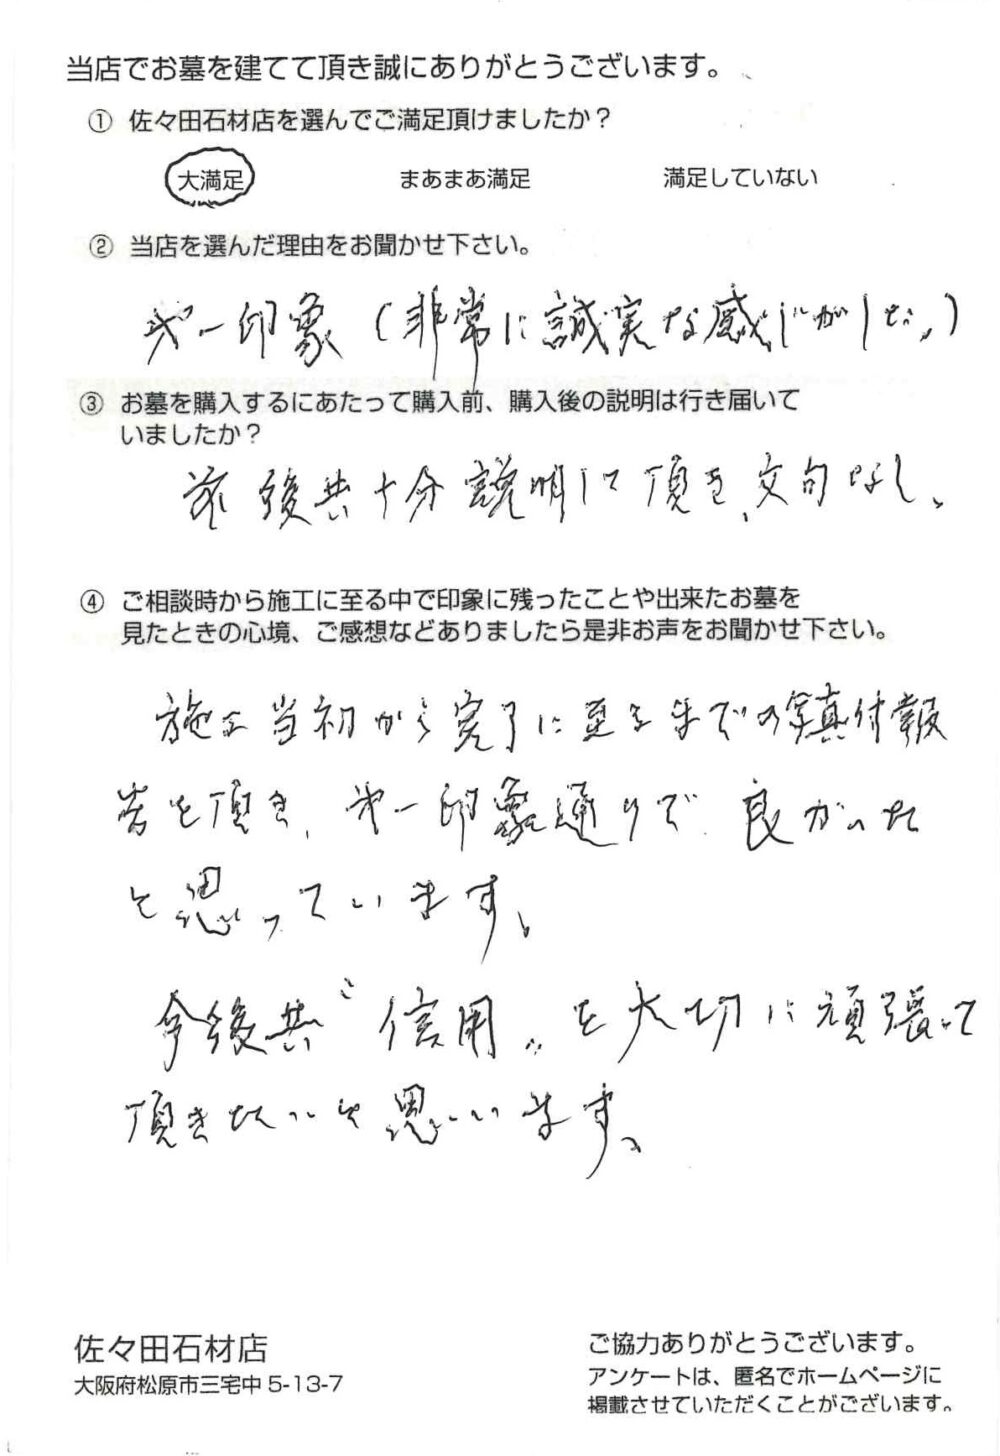 当店でお墓を建てて頂き誠にありがとうございます。
① 佐々田石材店を選んでご満足頂けましたか？
大満足 まあまあ満足 満足していない
② 当店を選んだ理由をお聞かせ下さい。
第一印象（非常に誠実な感じがした。）
③ お墓を購入するにあたって購入前、購入後の説明は行き届いて
いましたか？
前後共十分説明して頂き、文句なし。
④ ご相談時から施工に至る中で印象に残ったことや出来たお墓を
見たときの心境、ご感想などありましたら是非お声をお聞かせ下さい。
施工当初から完了に至るまでの写真付報
告を頂き、第一印象通りで良かった
と思っています。
今後共“信用„を大切に頑張って
頂きたいと思います。
佐々田石材店
大阪府松原市三宅中 5-13-7
ご協力ありがとうございます。
アンケートは、匿名でホームページに
掲載させていただくことがございます。